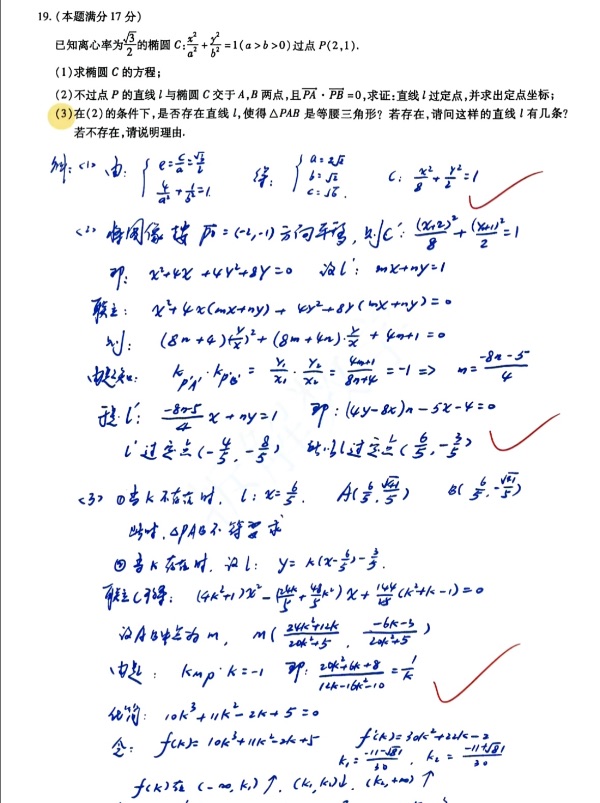 19.(本题满分17分)
已知离心率为√3/2的椭圆C:x²/a²+y²/b²=1(a>b>0)过点P(2,1).
(1)求椭圆C的方程;
(2)不过点P的直线l与椭圆C交于A,B两点,且PA·PB=0,求证:直线l过定点,并求出定点坐标;
(3)在(2)的条件下,是否存在直线l,使得△PAB是等腰三角形?若存在,请问这样的直线l有几条?
若不存在,请说明理由.
解:<1> 由: { e=c/a=√3/2 4/a²+1/b²=1. 得: { a=2√2 b=√2 c=√6. C: x²/8+y²/2=1
<2> 将图像按 PO=(-2,-1)方向平移, 则C′: (x+2)²/8+(y+1)²/2=1
即: x²+4x+4y²+8y=0 设l′: mx+ny=1
联立: x²+4x(mx+ny)+4y²+8y(mx+ny)=0
则: (8n+4)(y/x)²+(8m+4n)·y/x+4m+1=0
由题知: kP′A′·kP′B′=y₁/x₁·y₂/x₂=(4m+1)/(8n+4)=-1 => m=(-8n-5)/4
于是l′: (-8n-5)/4 x+ny=1 即:(4y-8x)n-5x-4=0
l′过定点(-4/5,-8/5) 所以l过定点(6/5,-3/5)
<3> ①当k不存在时, l: x=6/5. A(6/5, /5) B(6/5,- /5)
此时,△PAB不符要求
②当k存在时, 设l: y=k(x-6/5)-3/5.
联立C可得: (4k²+1)x²-(24k/5+48/5k²)x+144/25(k²+k-1)=0
设AB中点为M, M((24k²+12k)/(20k²+5), (-6k-3)/(20k²+5))
由题: kMP·k=-1 即: (20k²+6k+8)/(12k-16k²-10)=1/k
化简: 10k³+11k²-2k+5=0
令: f(k)=10k³+11k²-2k+5 f′(k)=30k²+22k-2
k₁=(-11-√181)/30, k₂=(-11+√181)/30
f(k)在(-∞,k₁)↑, (k₁,k₂)↓, (k₂,+∞)↑